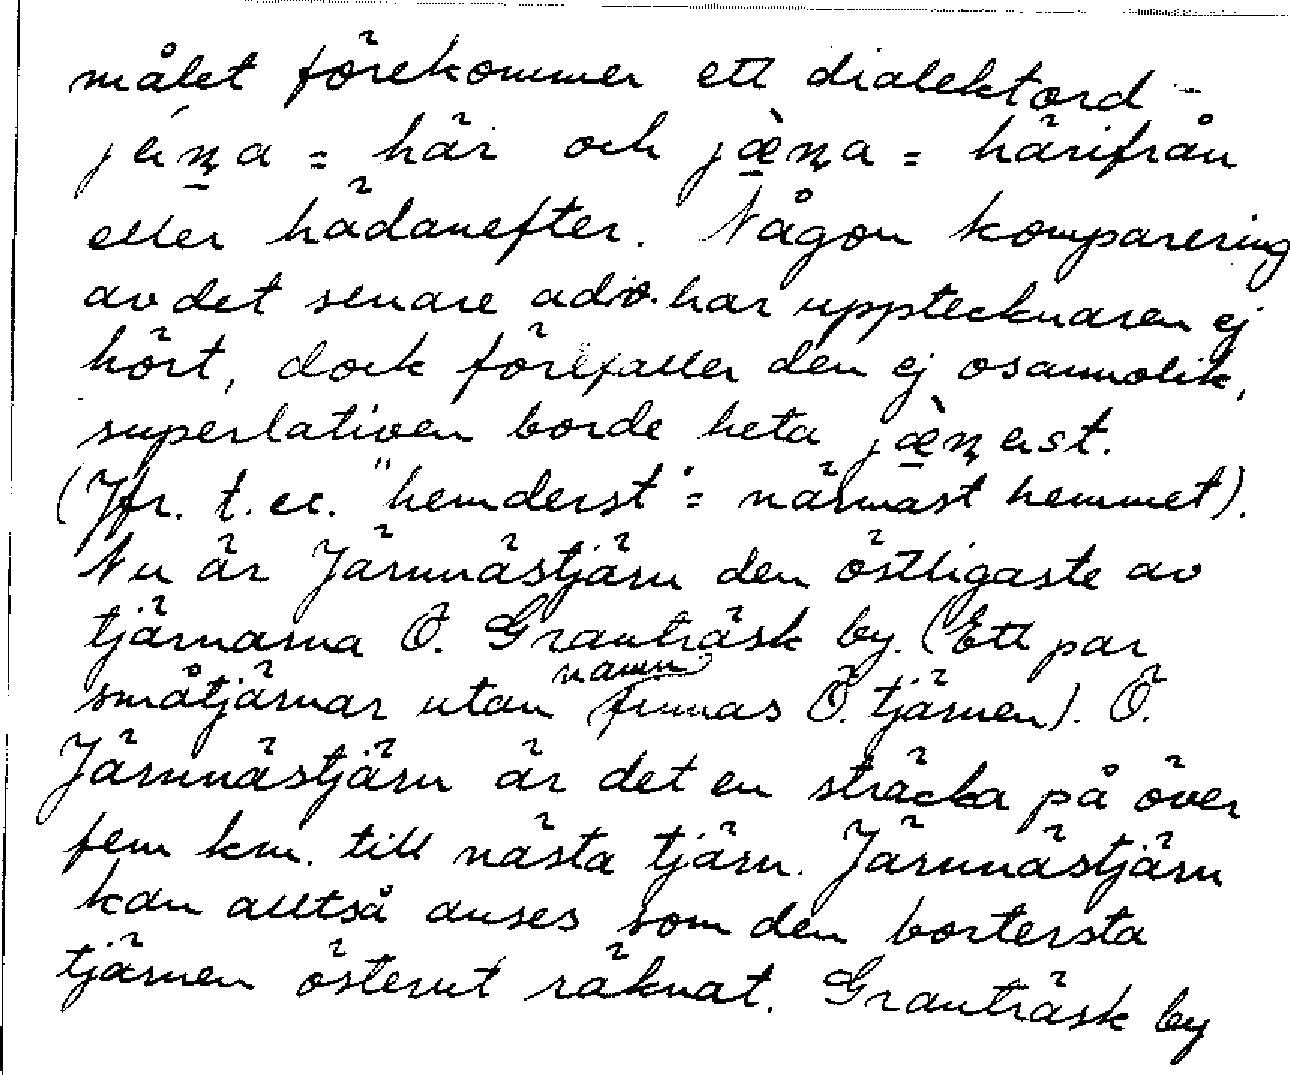 målet förekommer ett dialektord -
= här och jæ̀n̨a = härifrån
eller hädanefter. Någon komparering
av det senare adv. har upptecknaren ej
hört, dock förefaller den ej osannolik,
superlativen borde heta jæ̀n̨erst.
(Jfr. t. ex. "hemderst" = närmast hemmet).
Nu är Järnnästjärn den östligaste av
tjärnarna Ö. Granträsk by. (Ett par
småtjärnar utan namn finnas Ö. tjärnen). Ö.
Järnnästjärn är det en sträcka på över
fem km. till nästa tjärn. Järnnästjärn
kan alltså anses som den bortersta
tjärnen österut räknat. Granträsk by